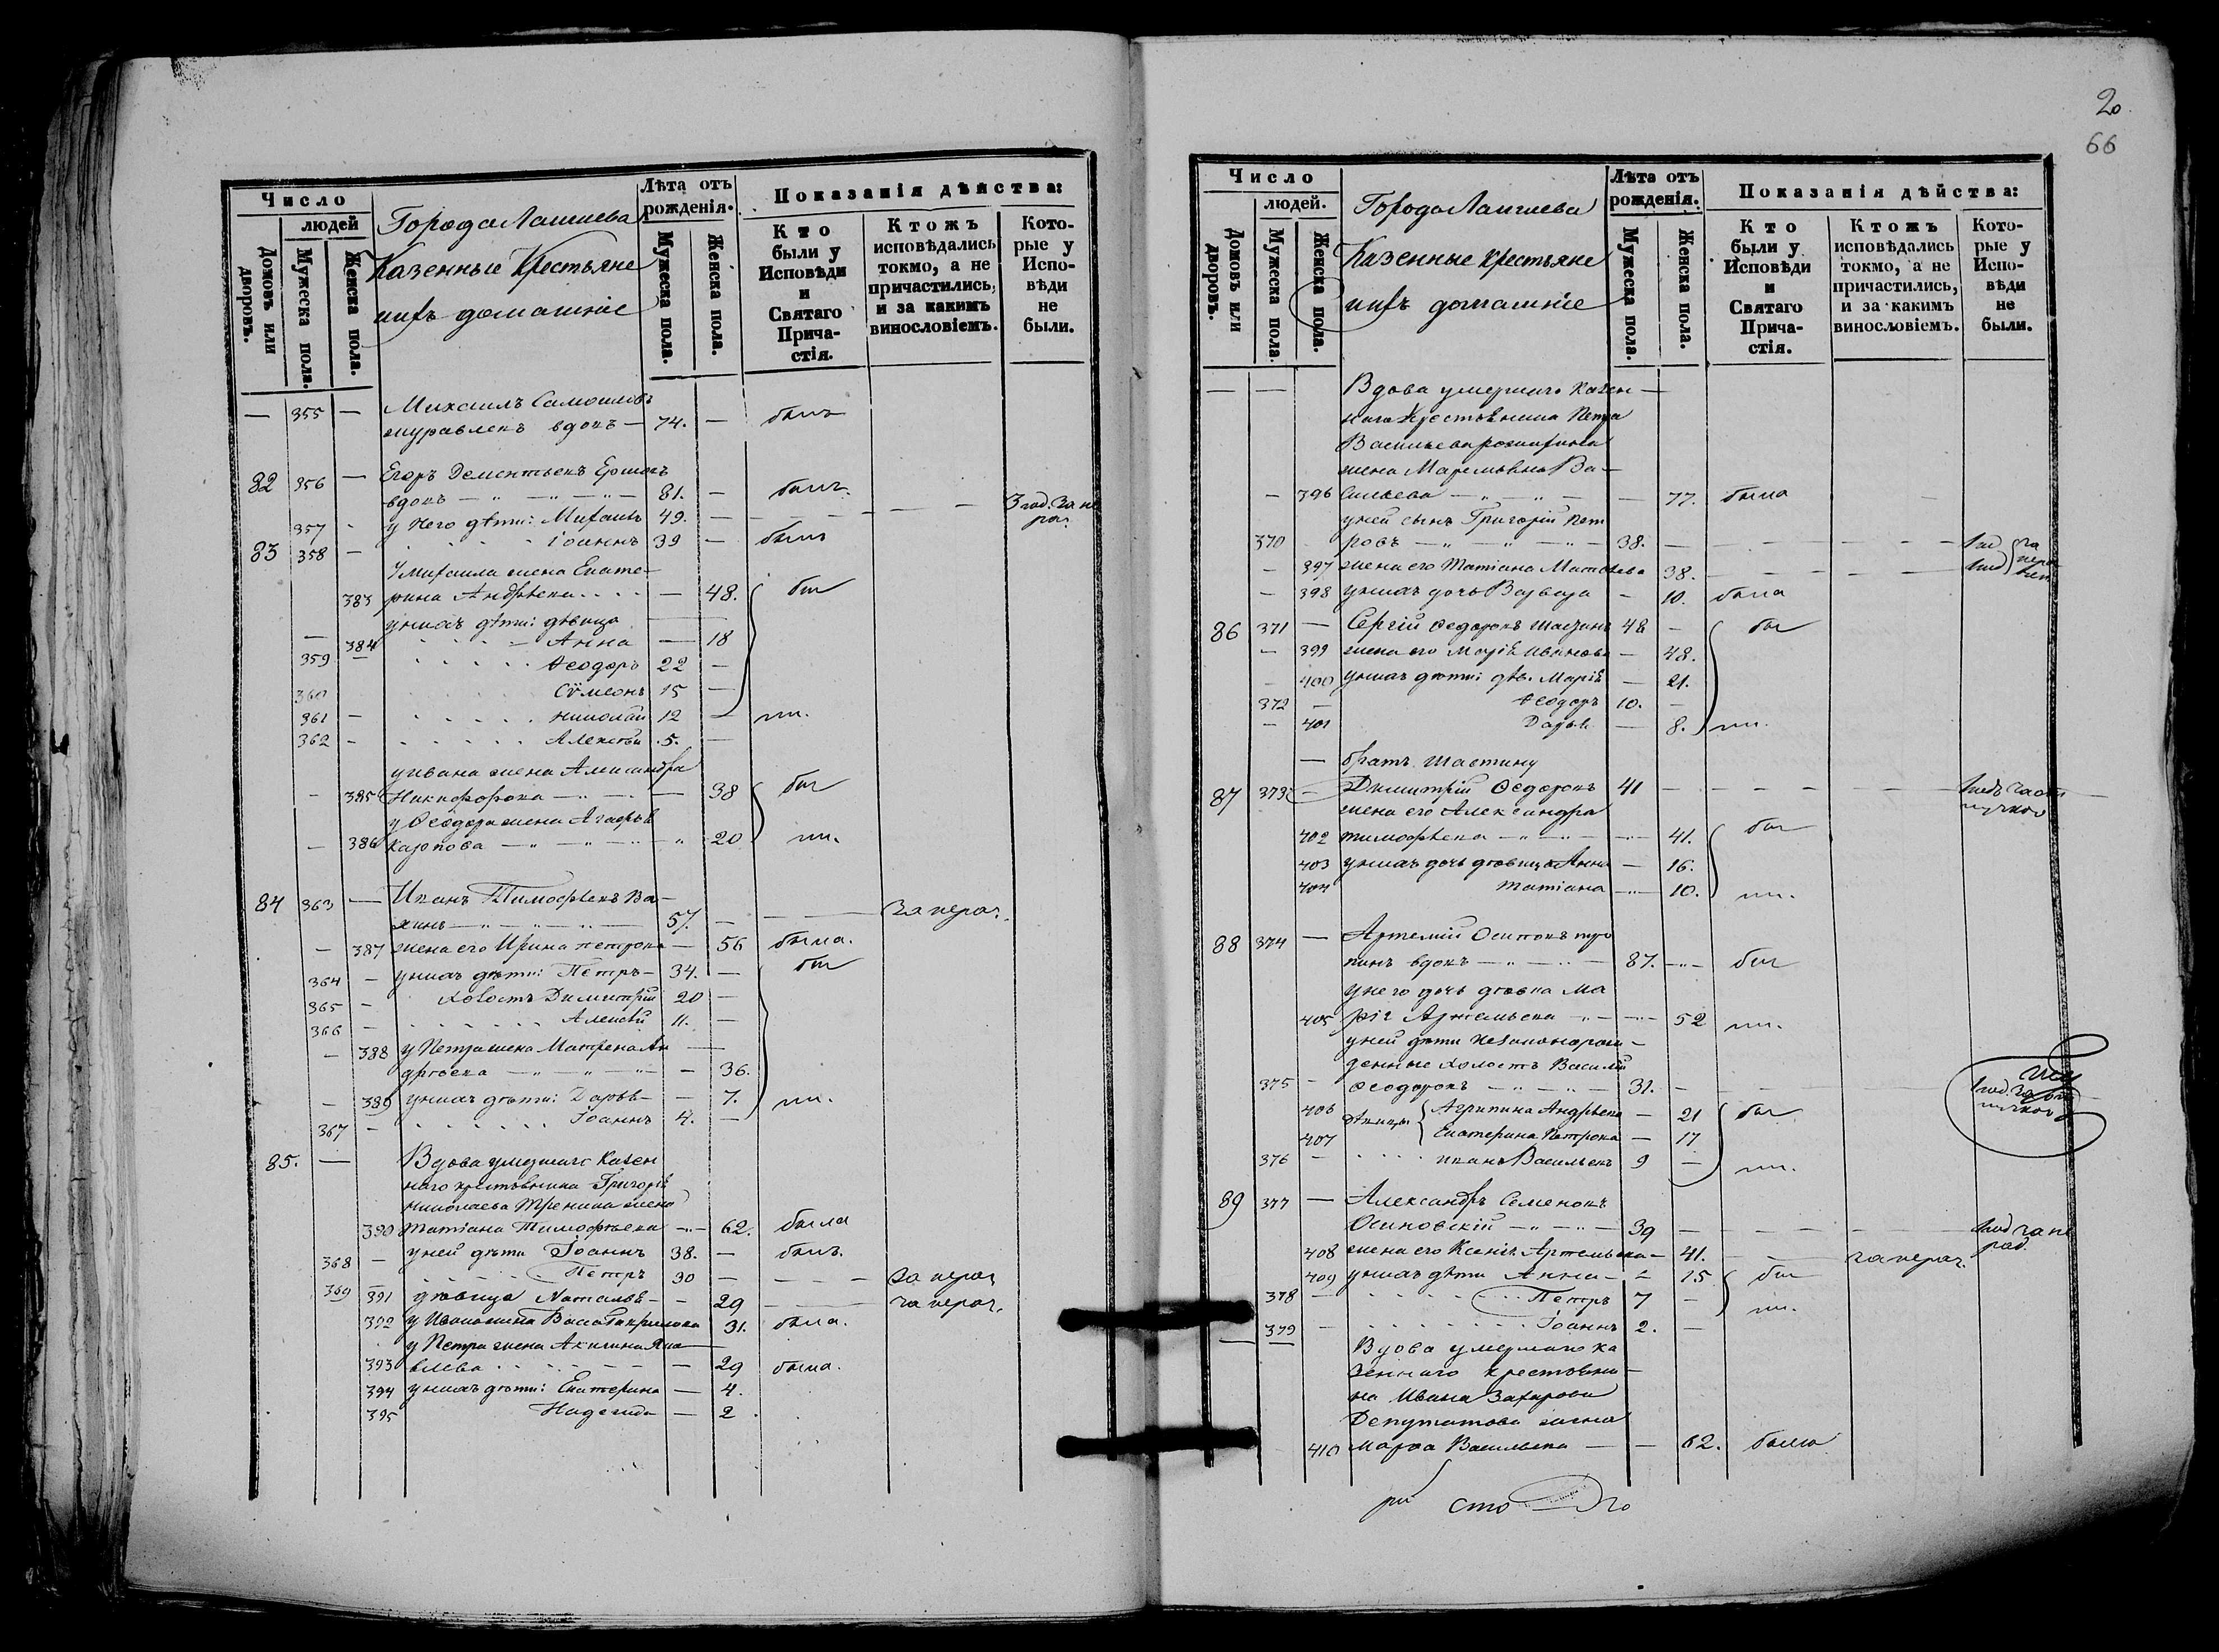 Число
людей
Домовъ или дворовъ.
Мужеска пола.
Женска пола.
Города Лаишева
Казенные Крестьяне
ихъ домашніе
Лѣта отъ рожденія.
Мужеска пола.
Женска пола.
Показанія дѣйства:
Кто были у Исповѣди и Святаго Причастія.
Ктожъ исповѣдались токмо, а не причастились, и за какимъ винословіемъ.
Которые у Исповѣди не были.
— 355 — Михаилъ
вдовъ — 74. — былъ
82 356 — Егоръ Дементьевъ
вдовъ — 81. — былъ
357 - у него дѣти: Михаилъ 49. —
83 358 — Іоаннъ 39 — былъ
У Михаила жена Екате-
383 рина Андрѣева — 48.
у нихъ дѣти: дѣвица
— 384 Анна — 18
359 — Ѳеодоръ 22 —
360 Сѵмеонъ 15 —
361 — Николай 12 —
362 - Алексѣй 5. —
у Ивана жена Александра
- 385 Никифорова — 38
у Ѳеодора жена Агафья
— 386 Карпова — 20
84 363 — Иванъ Тимофѣевъ Ва-
57. —
— 387 жена его Ирина Петрова — 56 была.
364 — у нихъ дѣти: Петръ — 34. —
365 — холостъ Димитрій 20 —
366 — Алексѣй 11. —
— 388 у Петра жена Матрена Ан
дрѣева — 36.
— 389 у нихъ дѣти: Дарья — 7.
367 — Іоаннъ 4. —
85. — Вдова умершаго казен
наго крестьянина Григорія
Николаева жена
390 Татіана Тимофѣева — 62. была
368 — у ней дѣти Іоаннъ 38. — былъ.
369 — Петръ 30 —
391 дѣвица Наталья — 29
392 31. была.
у Петра жена Акилина
393 29 была.
394 у нихъ дѣти: Екатерина — 4.
395 Надежда — 2
20
66
Число
людей.
Домовъ или дворовъ.
Мужеска пола.
Женска пола.
Города Лаишева
Казенные крестьяне
ихъ домашніе
Лѣта отъ рожденія.
Мужеска пола.
Женска пола.
Показанія дѣйства:
Кто были у Исповѣди и Святаго Причастія.
Ктожъ исповѣдались токмо, а не причастились, и за какимъ винословіемъ.
Которые у Исповѣди не были.
— — Вдова умершаго казен —
наго Крестьянина Петра
Васильева
жена Ва —
— 396 сильева — 77. была
у ней сынъ Григорій Пет
370 ровъ — 38. —
— 397 жена его Татіана 38.
— 398 у нихъ дочь Варвара — 10. была
86 371 — Сергій Ѳедоровъ 48 —
— 399 жена его Марія Иванова — 48.
— 400 у нихъ дѣти: дѣв. Марія — 21.
372 — Ѳеодоръ 10. —
— 401 Дарья — 8.
— братъ
87 373 — Димитрій Ѳедоровъ 41 —
жена его Александра
402 Тимофѣева — 41.
403 у нихъ дочь дѣвица Анна — 16.
404 Татіана — 10.
88 374 — Артемій Осиповъ
вдовъ — 87. —
у него дочь дѣвка Ма
405 рія Артемьева — 52
у ней дѣти незаконорож-
денные холостъ Василій
375 — Ѳеодоровъ — 31. —
406 дѣвицы Агрипина Андрѣева — 21
407 Екатерина Петрова — 17
376 — Иванъ Васильевъ 9 —
89 377 — Александръ Семеновъ
Осиновскій — 39 —
408 жена его Ксенія Артемьева — 41.
409 у нихъ дѣти Анна — 15
378 — Петръ 7 —
379 — Іоаннъ 2. —
Вдова умершаго ка
зеннаго крестьяни —
на Ивана Захарова
Депутатова жена
410 Марѳа Васильева — 62. была